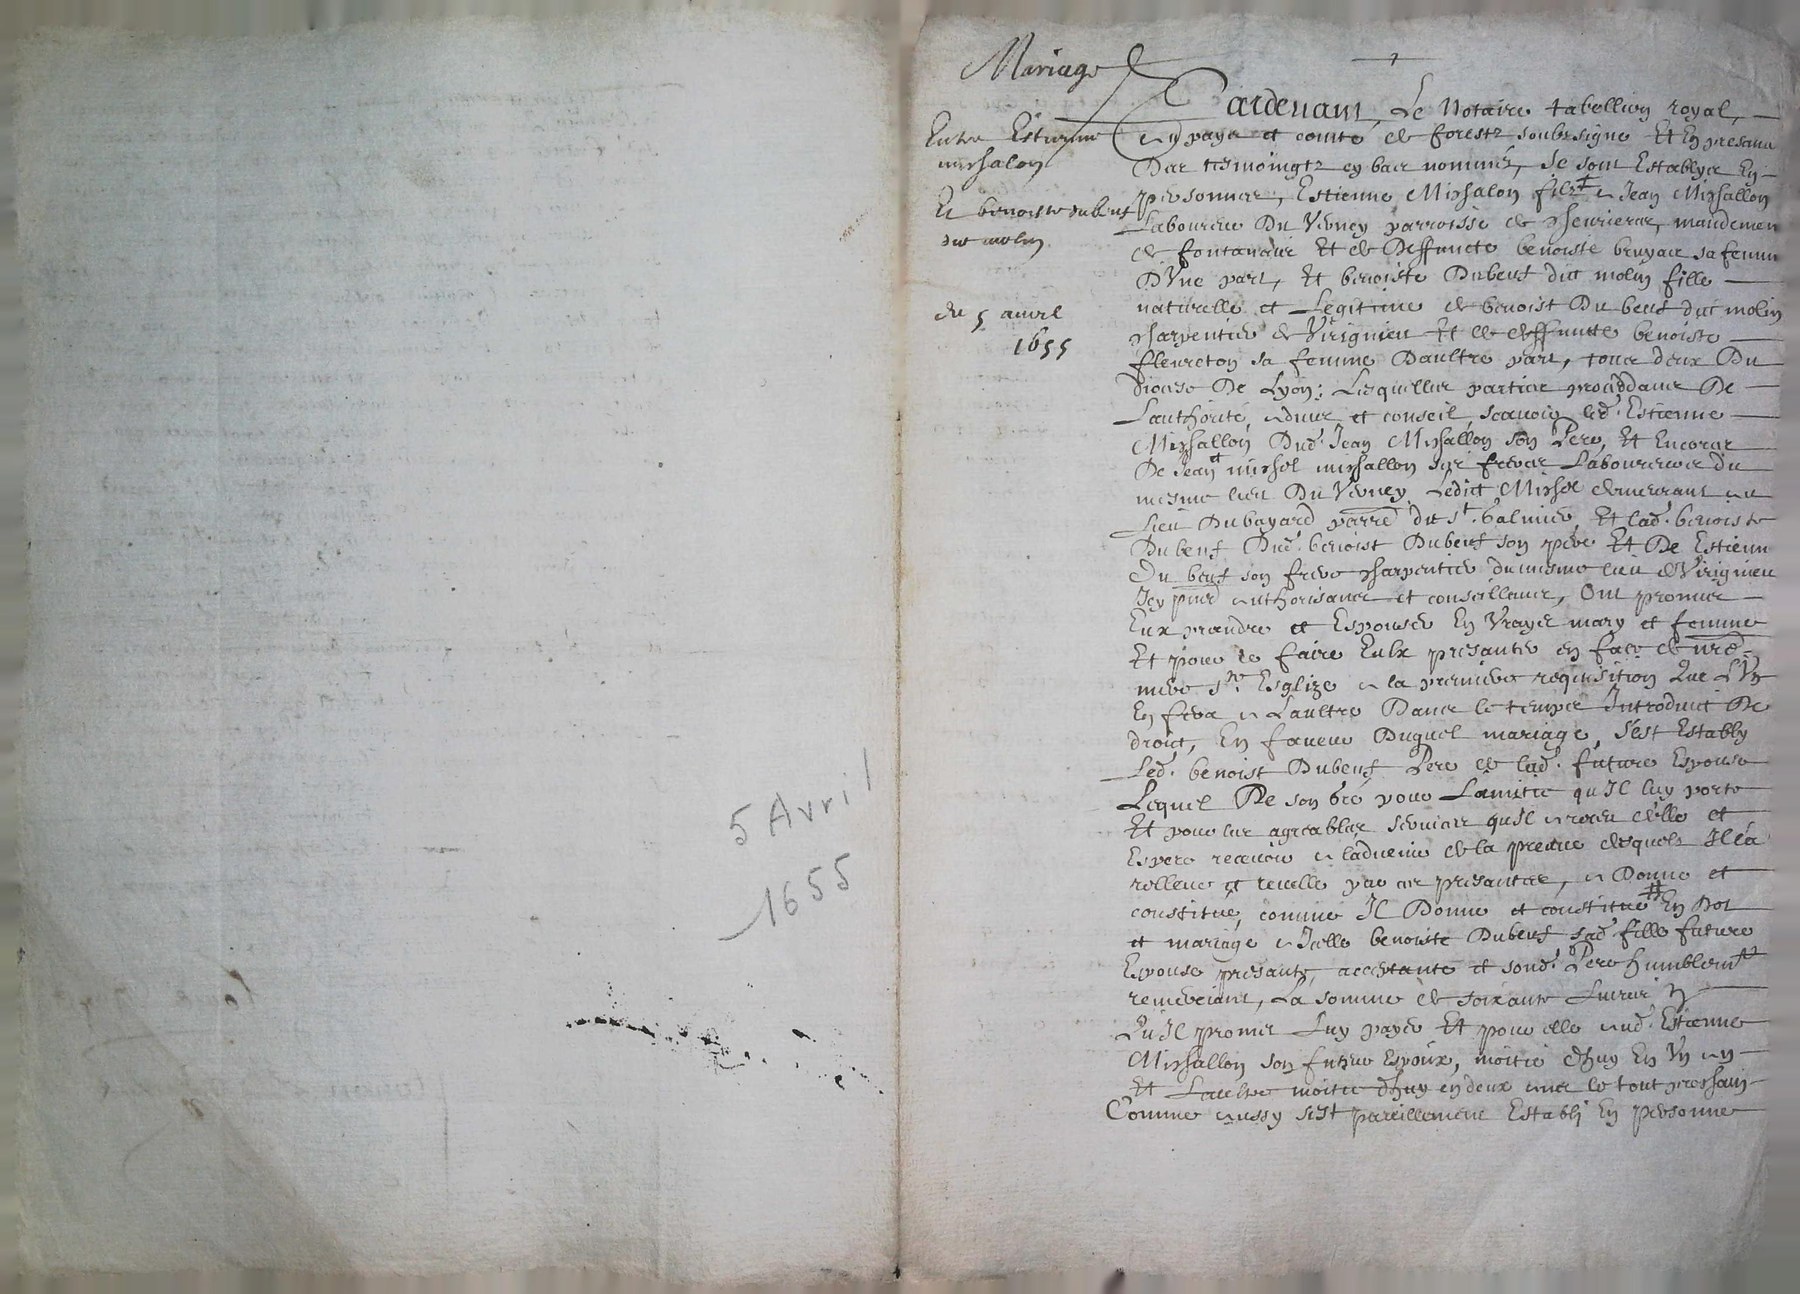 5 Avril
1655
Mariage
Entre Estienne
mishalon
Et benoiste dubeuf
dit molin
du 5 auril
1655
Pardeuant, Le Notaire tabellion royal,
au pays et comté de forestz soubsigné Et En presance
Des tesmoingtz en bas nommés, se sont Establys En
personnes, Estienne Mishalon filz à Jean Mishallon
Laboureur Du Verney parroisse de Cheurieres, mandement
de fontanes Et de Deffuncte benoiste bruyas sa femme
D'Vne part, Et benoiste Dubeuf dict molin fille
naturelle et Legitime de benoist Du beuf dict molin
charpentier de Virignieu Et de deffuncte benoiste
fleureton sa femme D'aultre part, tous deux Du
diocese De Lyon; Lesquelles parties proceddans De
L'authorité, aduis et conseil, scauoir led. Estienne
Mishallon Dud. Jean Mishallon son Pere, Et Encores
De Jean et mishel mishallon ses freres Laboureurs du
mesme lieu Du Verney, Ledict Mishel demeurant au
Lieu Dubayard parre de St. Galmier, Et lad. benoiste
Dubeuf Dud. benoist Dubeuf son pere Et De Estienne
Du beuf son frere charpentier du mesme lieu de Virignieu
Icy pntz authorisans et conseillans, Ont promis
Eux prandre et Espouser En Vrays mary et femme
Et pour ce faire Eulx presanter en face de nre
mere ste Esglize a la premiere requisition Que L'Vn
En fera a L'aultre Dans le temps Introduict De
droict, En faueur Duquel mariage, s'est Estably
Led. benoist Dubeuf Pere de lad. future Espouse
Lequel De son gré pour L'amitié qu'Il luy porte
Et pour les agreables seruices qu'Il a receu d'elle et
Espere receuoir a l'aduenir de la preuue desquels Il l'a
relleué et relleue par ces presantes, a Donné et
constitué, comme Il Donne et constitue En Dot
et mariage a Icelle benoiste Dubeuf sad. fille future
Espouse presante, acceptante et sond. Pere humblemt
remerciant, La somme de soixante Liures
Qu'Il promet Luy payer Et pour elle aud. Estienne
Mishallon son futur Espoux, moitié d'huy En Vn an
Et L'aultre moitié d'huy en deux ans le tout prochain
Comme aussy s'est pareillement Establi En personne